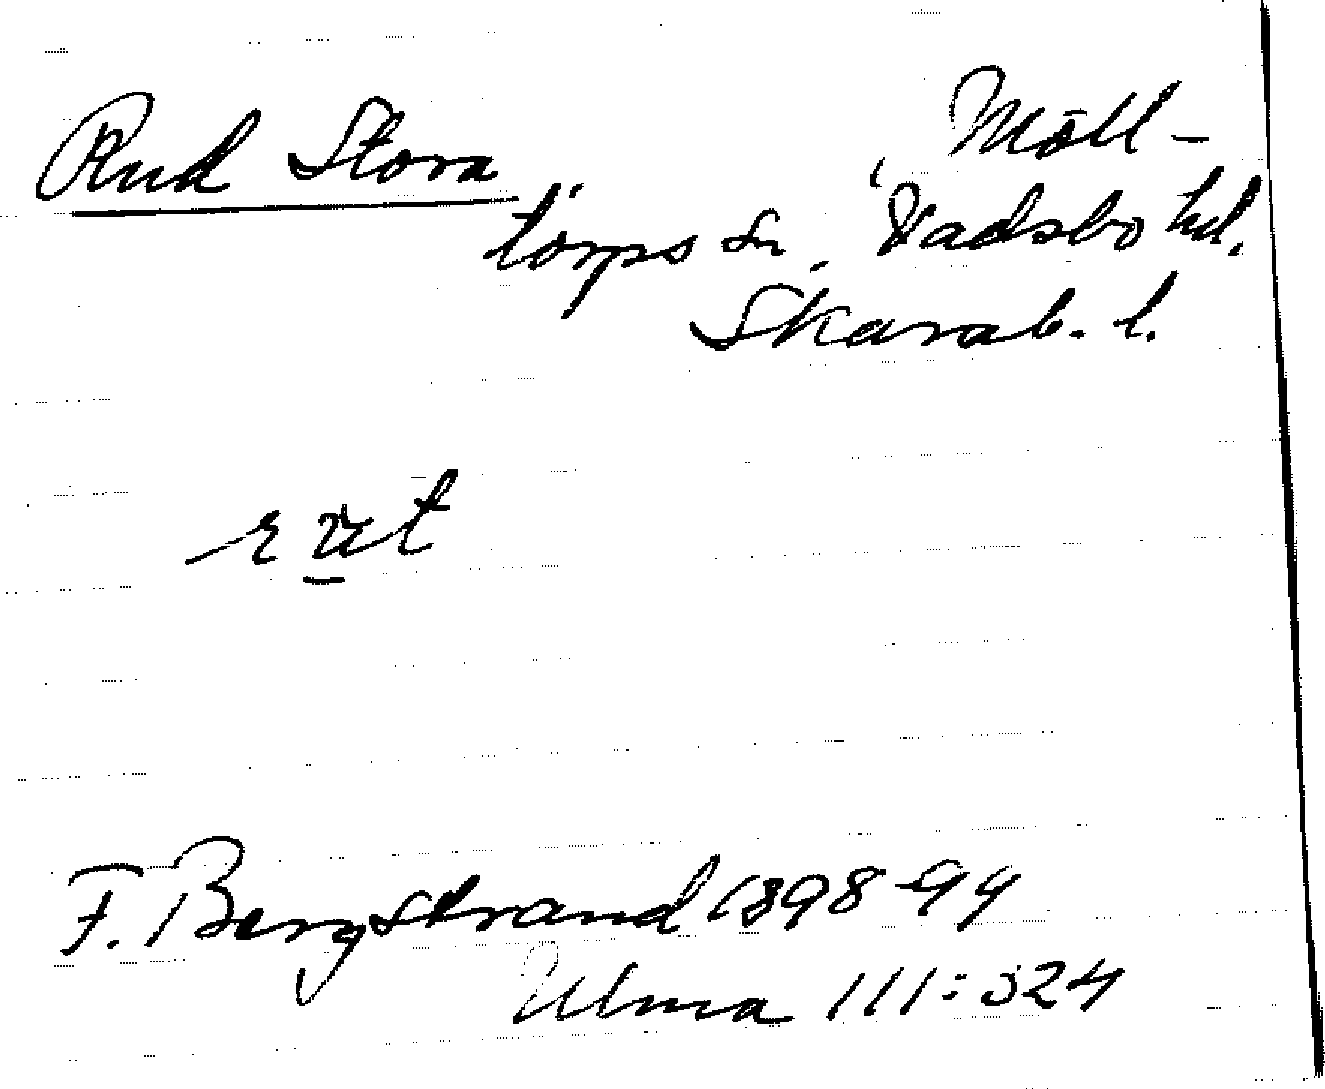 Rud Stora Möll-
torps sn, Vadsbo hd.
Skarab. l.
F. Bergstrand 1898-99
Ulma 111:324